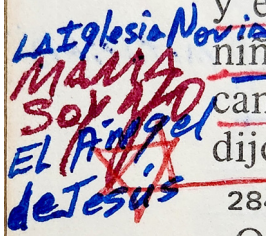 LA Iglesia Novia
MAMA
SOY YO
EL Ángel
de Jesús
y e
nin
can
dijo
284